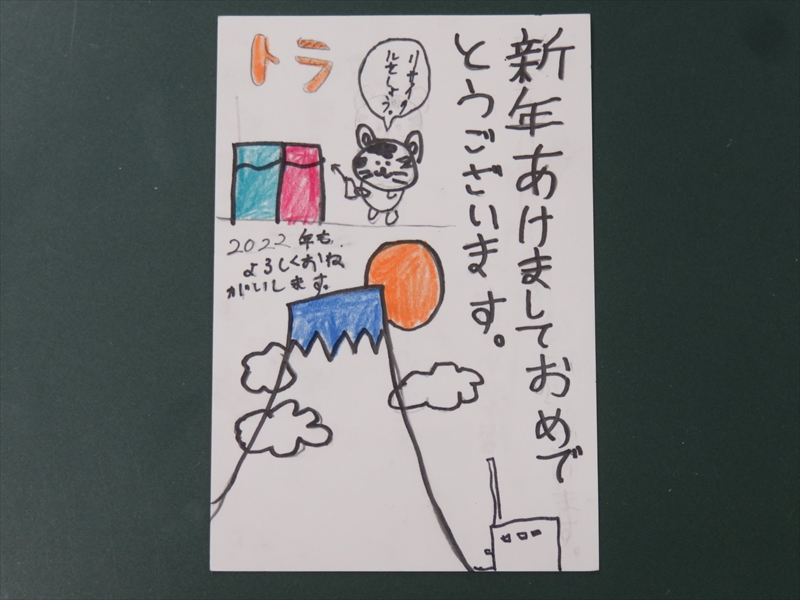 新年あけましておめで
とうございます。
トラ
リサイク
ルをしよう。
2022年も
よろしくおね
がいします。